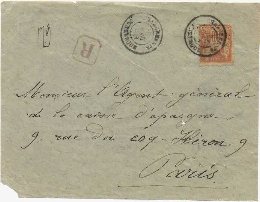 R
Monsieur l'Agent général
de la caisse d'épargne
9 rue du Coq-Héron 9
Paris